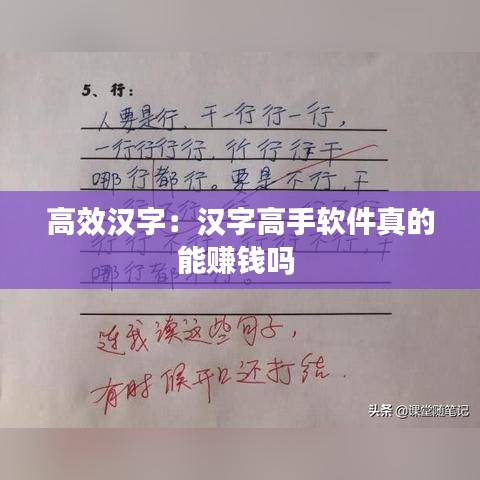 5、行：
人要是行、干一行行一行，
一行行行行，行行行干
哪行都行。要是不行，干
高效汉字：汉字高手软件真的
能赚钱吗
哪行都不行。
连我读这些句子，
有时候开口还打结.
头条 @课堂随笔记